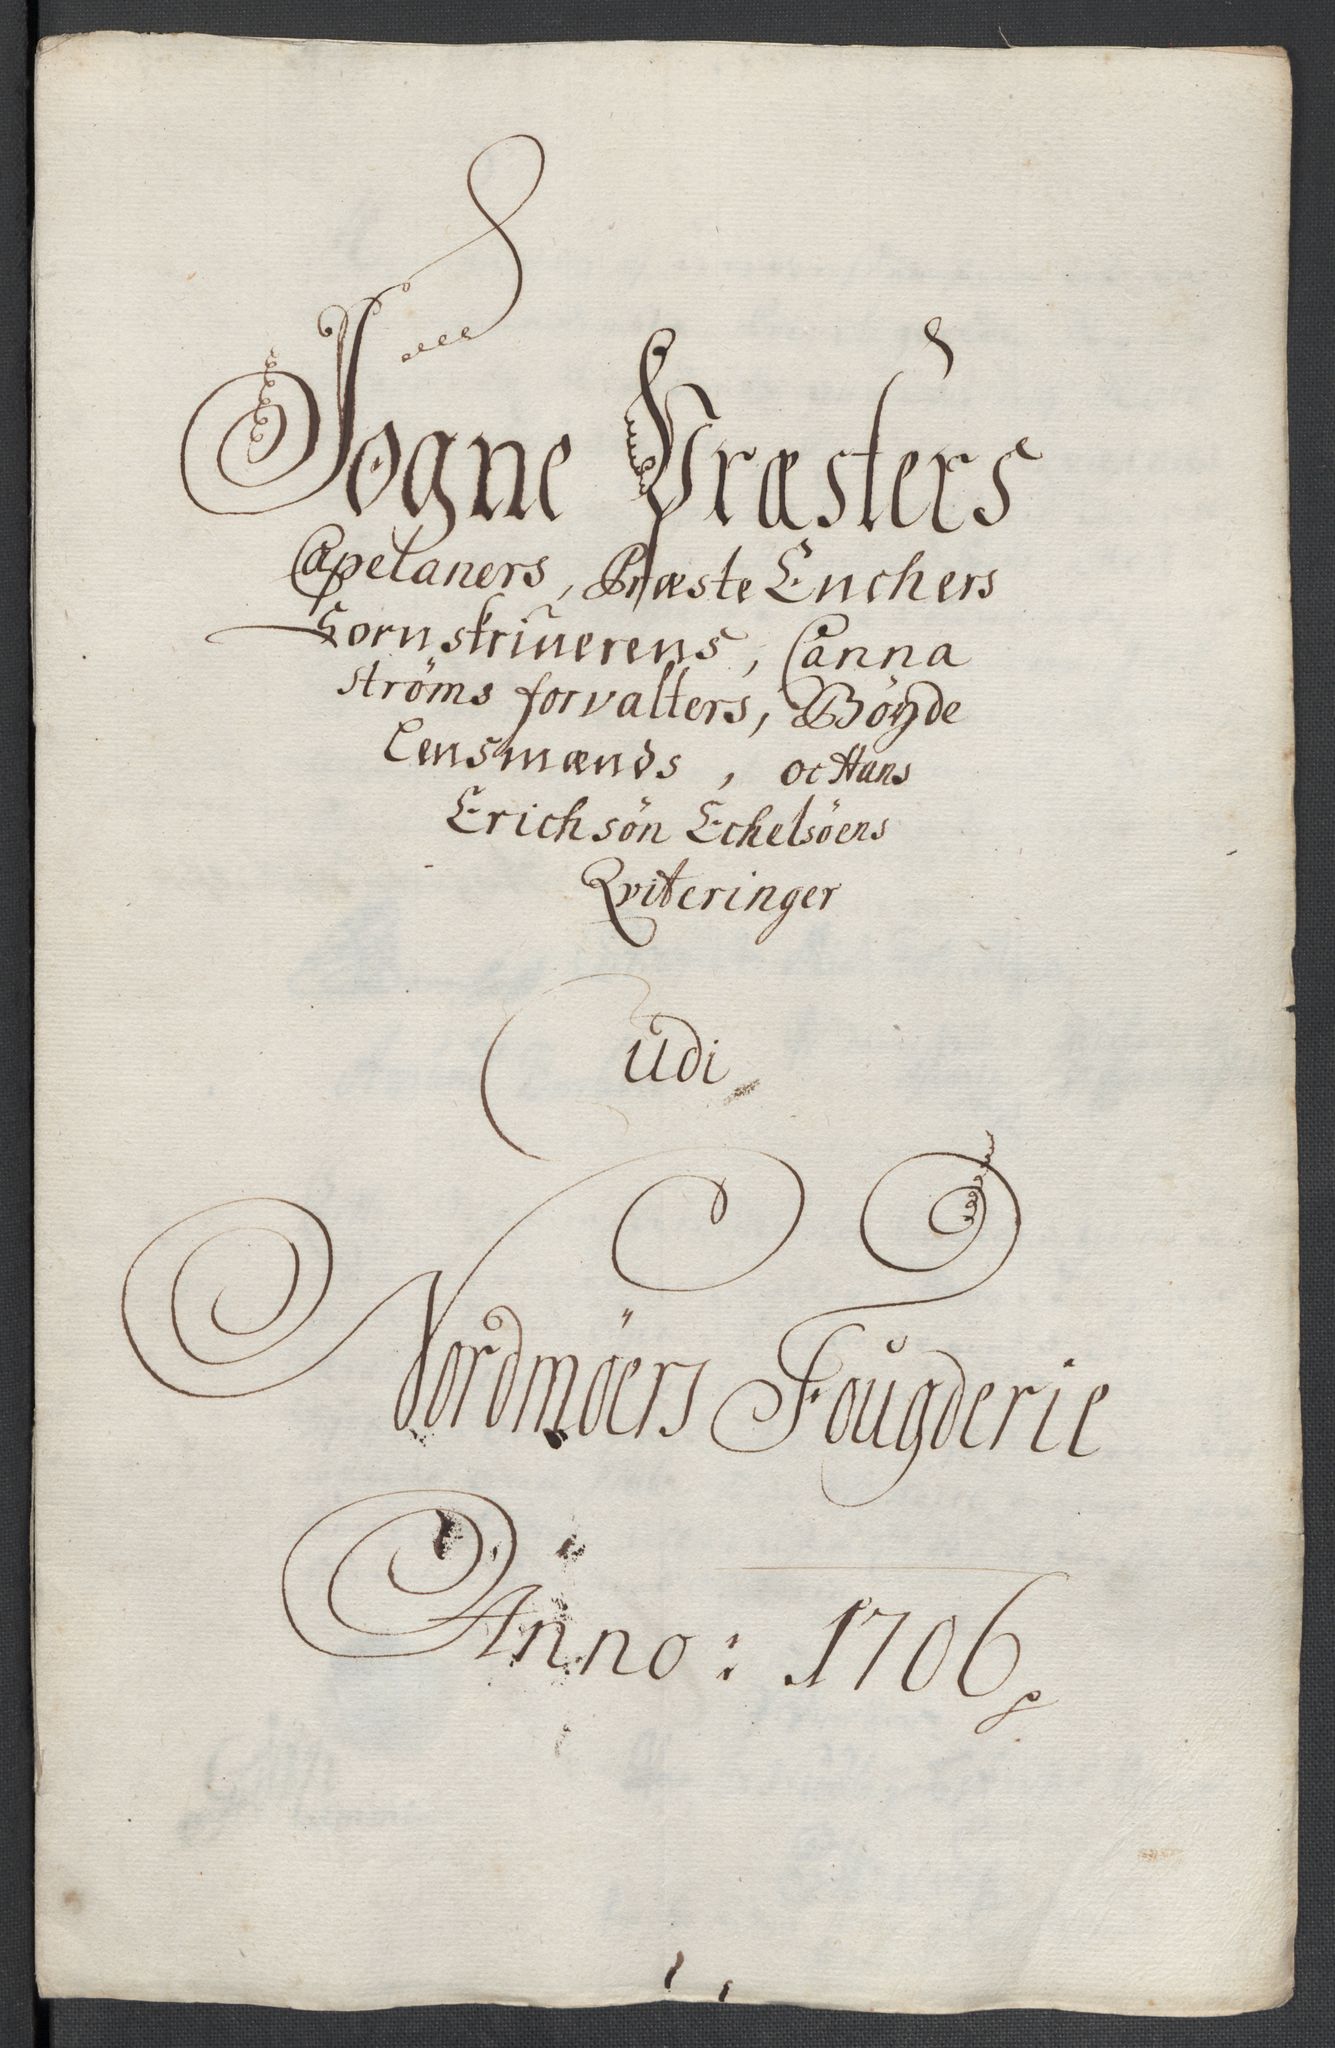 Sogne Præsters
Capelaners, Præste Enchers
Sornskriverens, Canna
ströms forvalters, Böyde
Lensmænds, oc Hans
Erichsön Echelsöens
Qviteringer
udi
Nordmöers Fougderie
Anno: 1706